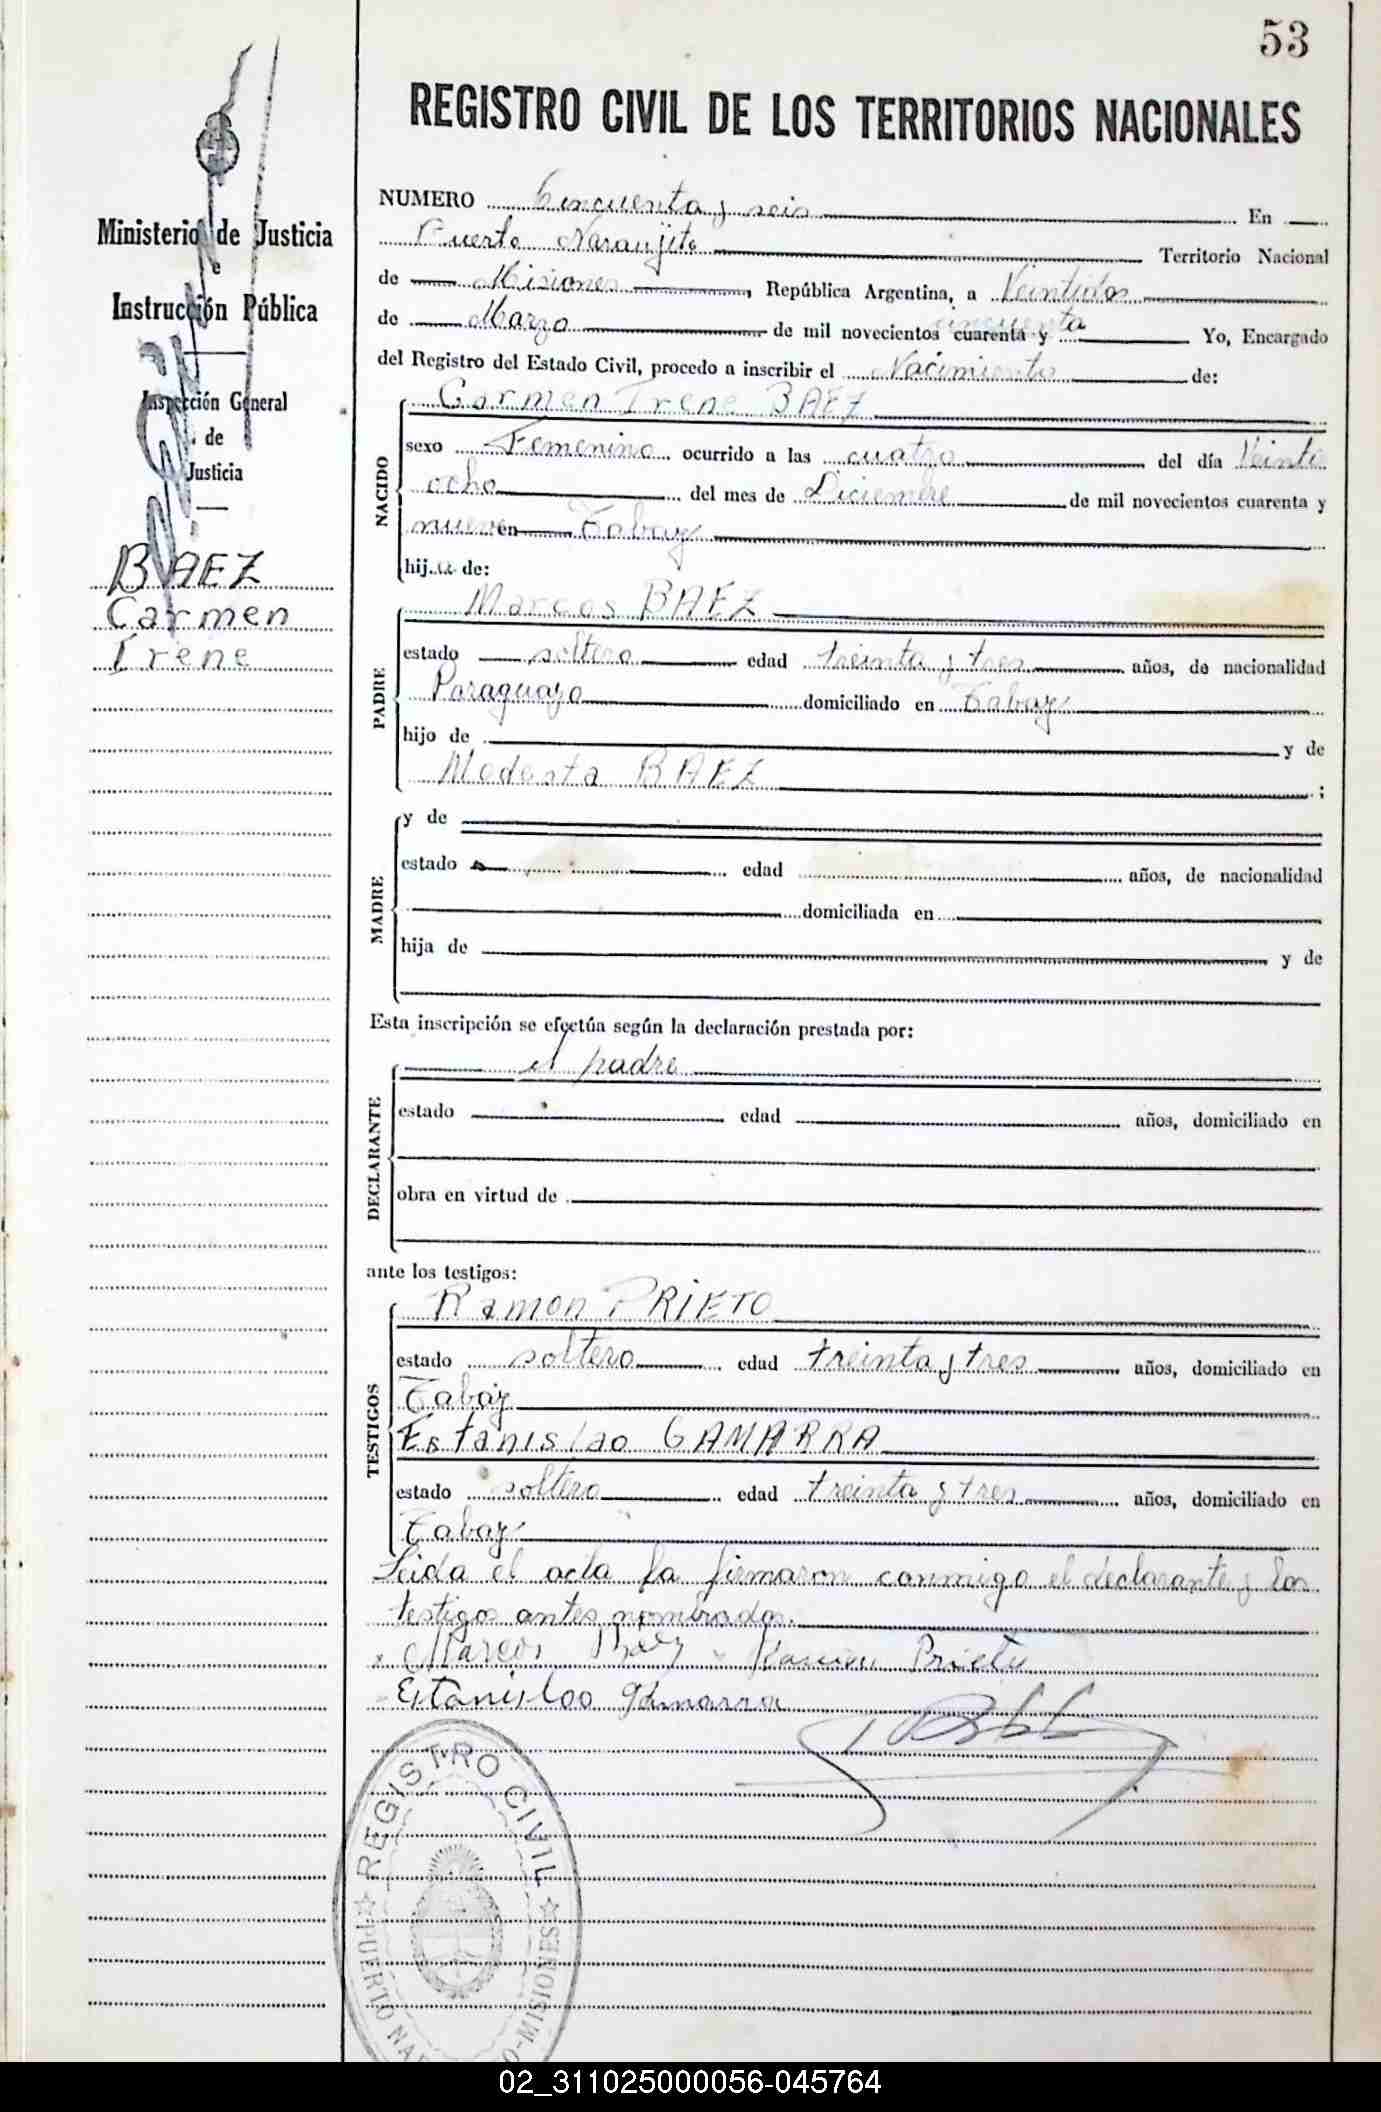 53
REGISTRO CIVIL DE LOS TERRITORIOS NACIONALES
Ministerio de Justicia
e
Instrucción Pública
Inspección General
de
Justicia
BAEZ
Carmen
Irene
NUMERO Cincuenta y seis En
Puerto Naranjito Territorio Nacional
de Misiones, República Argentina, a Veintidos
de Marzo de mil novecientos cuarenta y cincuenta Yo, Encargado
del Registro del Estado Civil, procedo a inscribir el Nacimiento de:
NACIDO
Carmen Irene BAEZ
sexo Femenino ocurrido a las cuatro del día Veinti
ocho del mes de Diciembre de mil novecientos cuarenta y
nueve en Tabay
hija de:
PADRE
Marcos BAEZ
estado soltero edad treinta y tres años, de nacionalidad
Paraguayo domiciliado en Tabay
hijo de y de
Modesta BAEZ ;
MADRE
y de
estado edad años, de nacionalidad
domiciliada en
hija de y de
Esta inscripción se efectúa según la declaración prestada por:
DECLARANTE
el padre
estado edad años, domiciliado en
obra en virtud de
ante los testigos:
TESTIGOS
Ramon PRIETO
estado soltero edad treinta y tres años, domiciliado en
Tabay
Estanislao GAMARRA
estado soltero edad treinta y tres años, domiciliado en
Tabay
Leida el acta la firmaron conmigo el declarante y los
testigos antes nombrados.
Marcos Báez Ramon Prieto
Estanisloo Gamarra
REGISTRO CIVIL
PUERTO NAR O-MISIONES
02_311025000056-045764